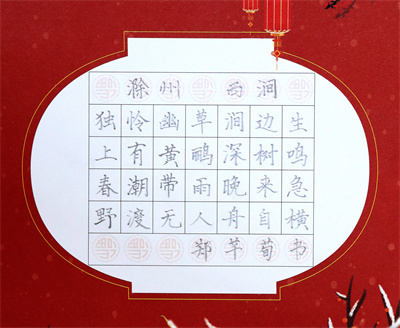 滁州西涧
独怜幽草涧边生
上有黄鹂深树鸣
春潮带雨晚来急
野渡无人舟自横
郑芊荀书